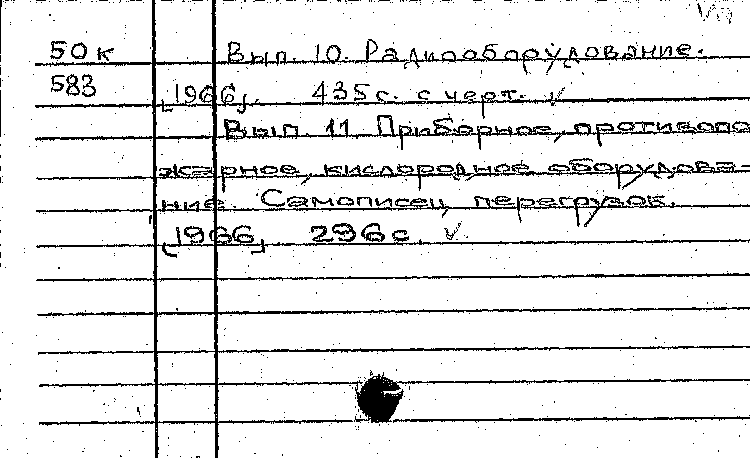 50к Вып. 10. Радиооборудование.
583 [1966]. 435с. с черт. ✓
Вып. 11. Приборное, противопо
жарное, кислородное оборудова-
ние. Самописец перегрузок.
[1966] 296с. ✓